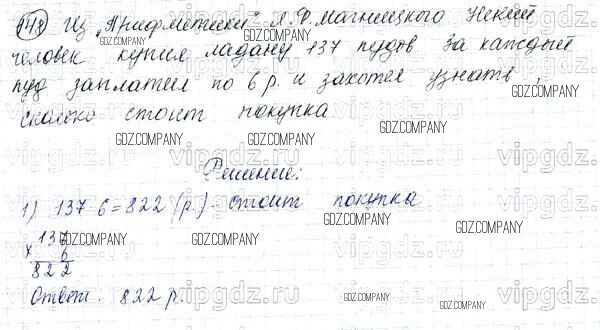 141 Из "Арифметики" Л.Ф. Магницкого Некий
человек купил ладану 137 пудов За каждый
пуд заплатил по 6 р. и захотел узнать,
сколько стоит покупка
GDZ.COMPANY
Решение:
1) 137 6 = 822 (р.) стоит покупка
137
× 6
822
Ответ. 822 р.
vipgdz.